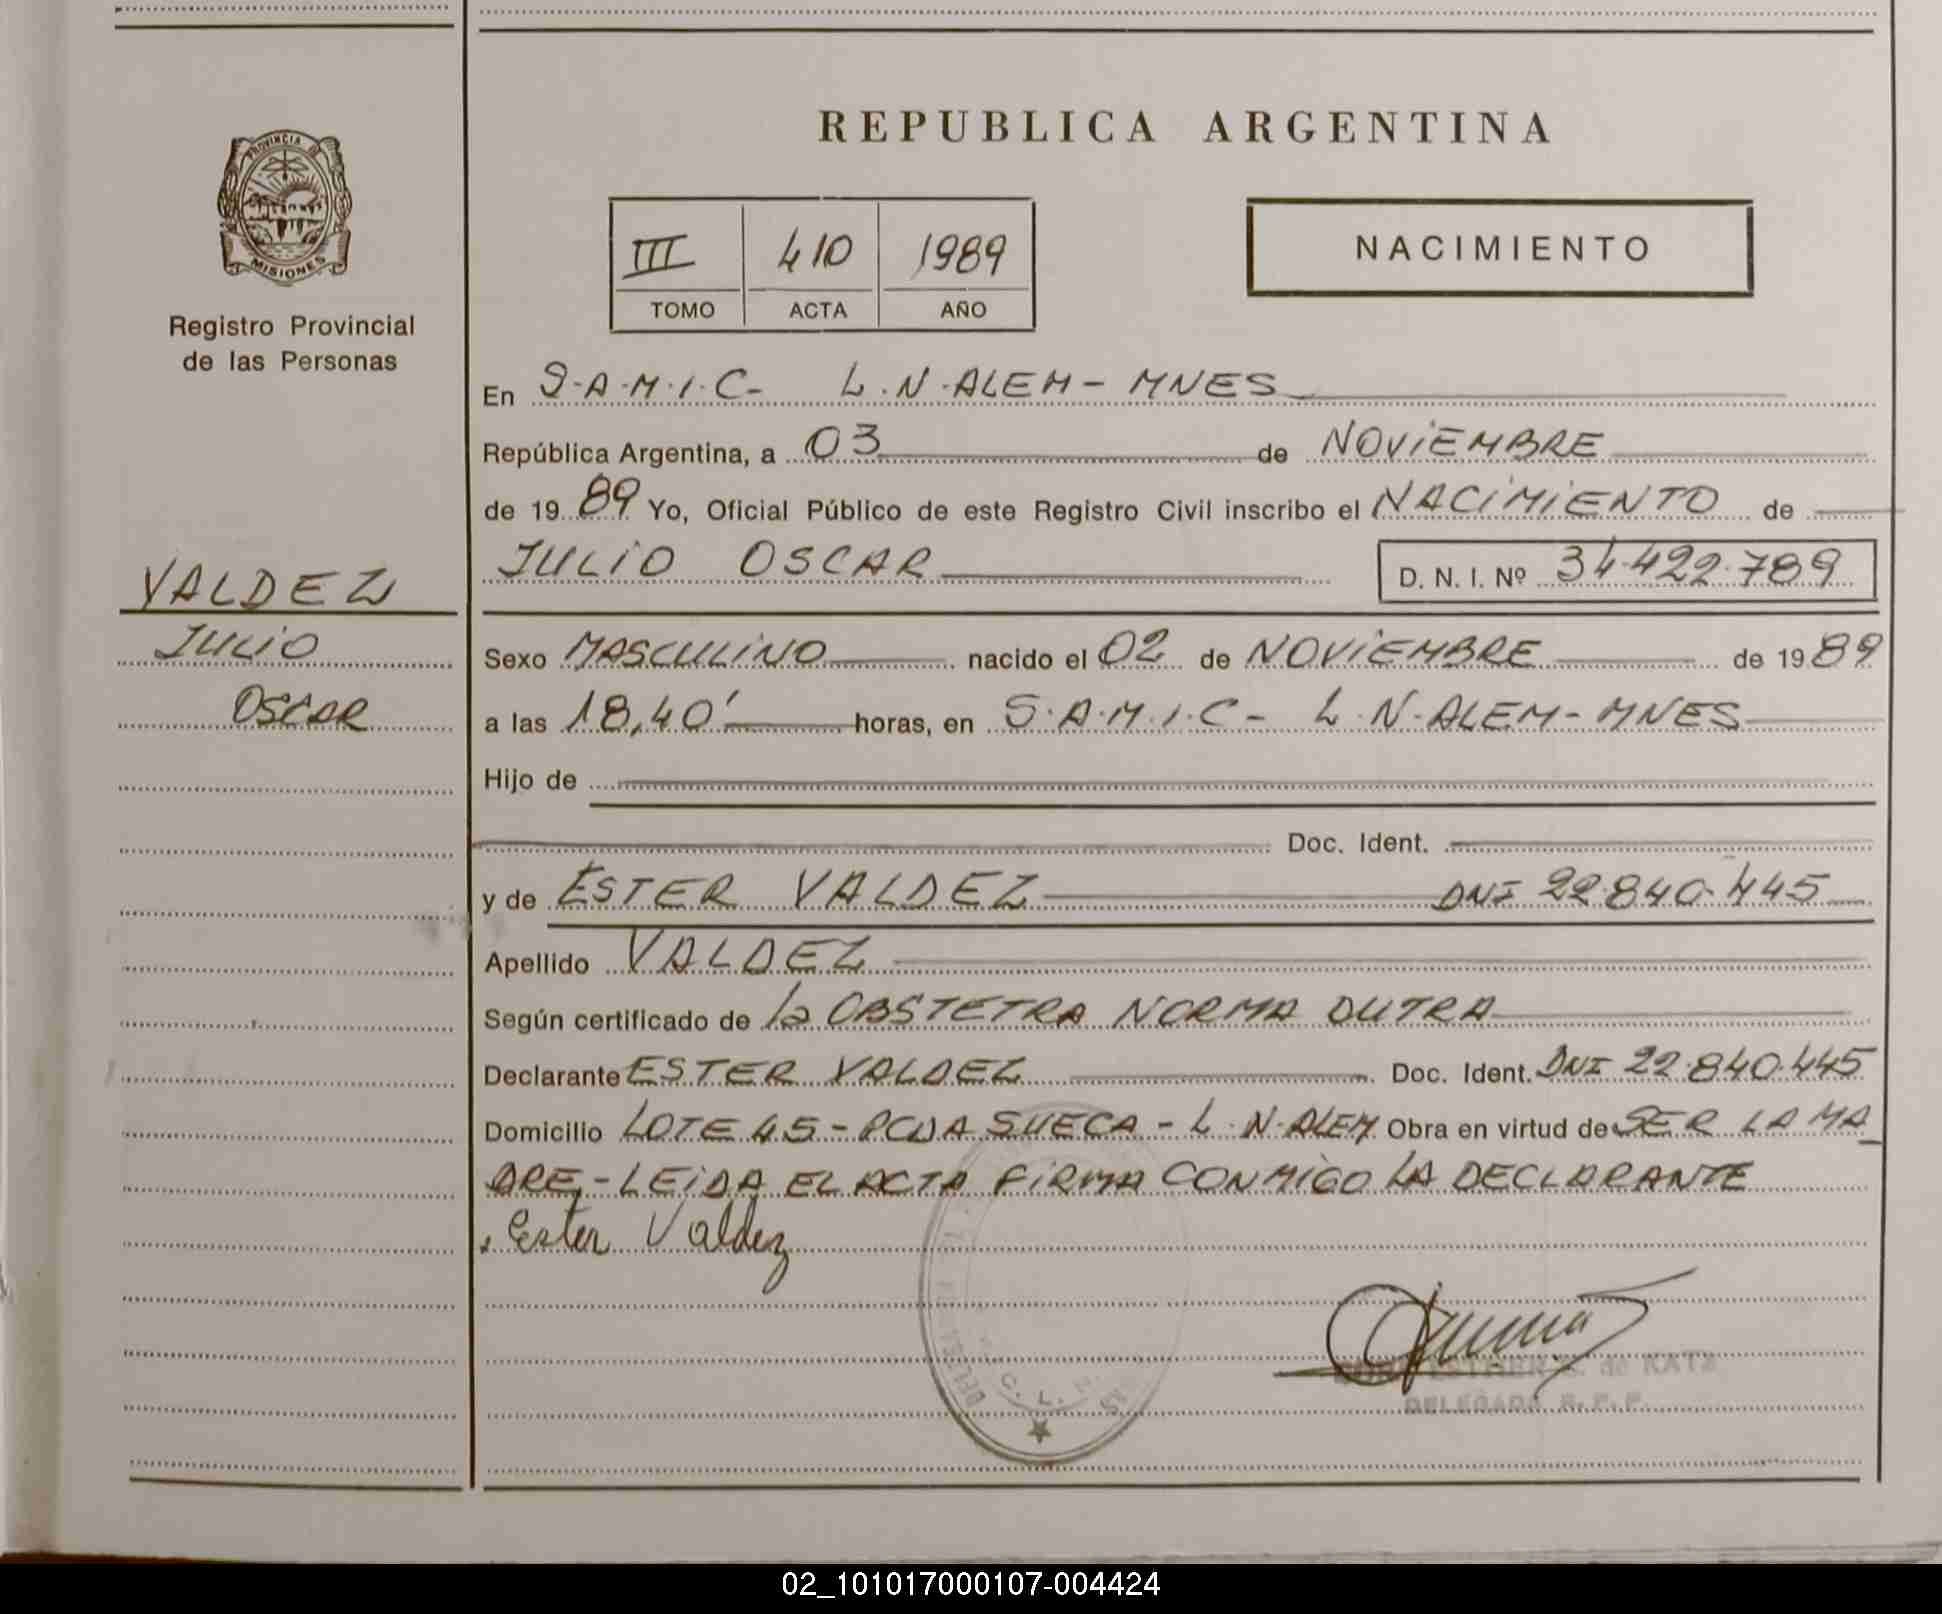 REPUBLICA ARGENTINA
PROVINCIA DE
MISIONES
Registro Provincial
de las Personas
III 410 1989
TOMO ACTA AÑO
NACIMIENTO
En S.A.M.I.C- L.N.ALEM- MNES
República Argentina, a 03 de NOVIEMBRE
de 1989 Yo, Oficial Público de este Registro Civil inscribo el NACIMIENTO de
JULIO OSCAR D. N. I. Nº 34.422.789
VALDEZ
JULIO
OSCAR
Sexo MASCULINO nacido el 02 de NOVIEMBRE de 1989
a las 18,40' horas, en S.A.M.I.C- L.N.ALEM- MNES
Hijo de
Doc. Ident.
y de ESTER VALDEZ DNI 22.840.445
Apellido VALDEZ
Según certificado de la OBSTETRA NORMA DUTRA
Declarante ESTER VALDEZ Doc. Ident. DNI 22.840.445
Domicilio LOTE 45 - PCDA SUECA - L.N.ALEM Obra en virtud de SER LA MA
DRE, - LEIDA EL ACTA FIRMA CONMIGO LA DECLARANTE
Ester Valdez
de KATZ
DELEGADA R. P. P.
02_101017000107-004424